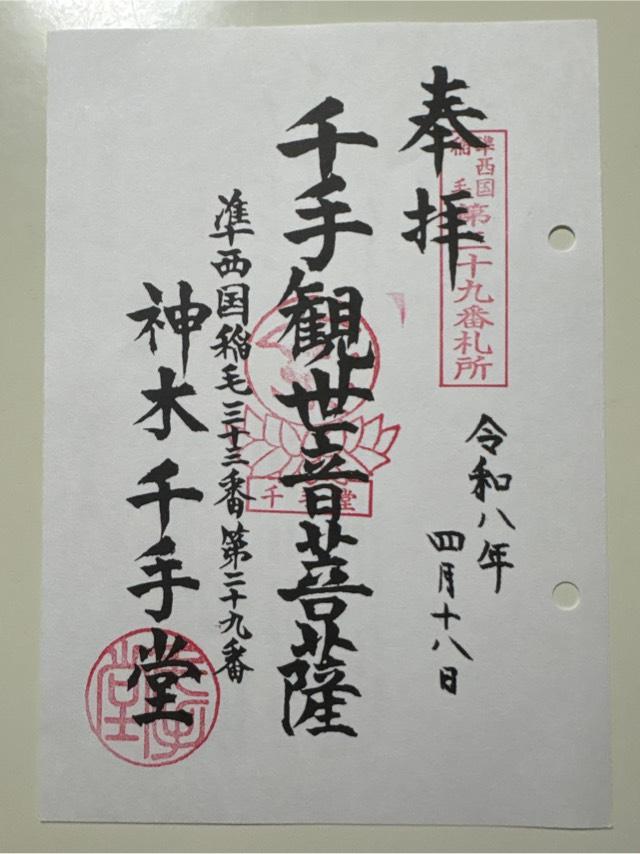 奉拝
準西国
稲毛
第二十九番札所
令和八年
四月十八日
千手観世音菩薩
千手堂
準西国稲毛三十三番第二十九番
神木千手堂